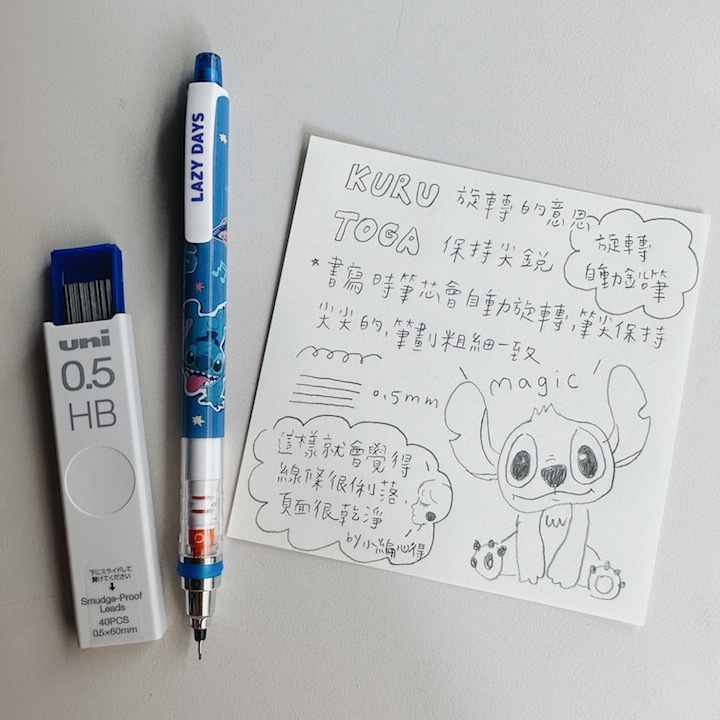 LAZY DAYS
uni
0.5
HB
下にスライドして
開けてください
Smudge-Proof
Leads
40PCS
0.5×60mm
KURU 旋轉的意思
TOGA 保持尖銳
旋轉
自動鉛筆
*書寫時筆芯會自動旋轉,筆尖保持
尖尖的,筆劃粗細一致
magic
0.5mm
這樣就會覺得
線條很俐落,
頁面很乾淨
by小編心得